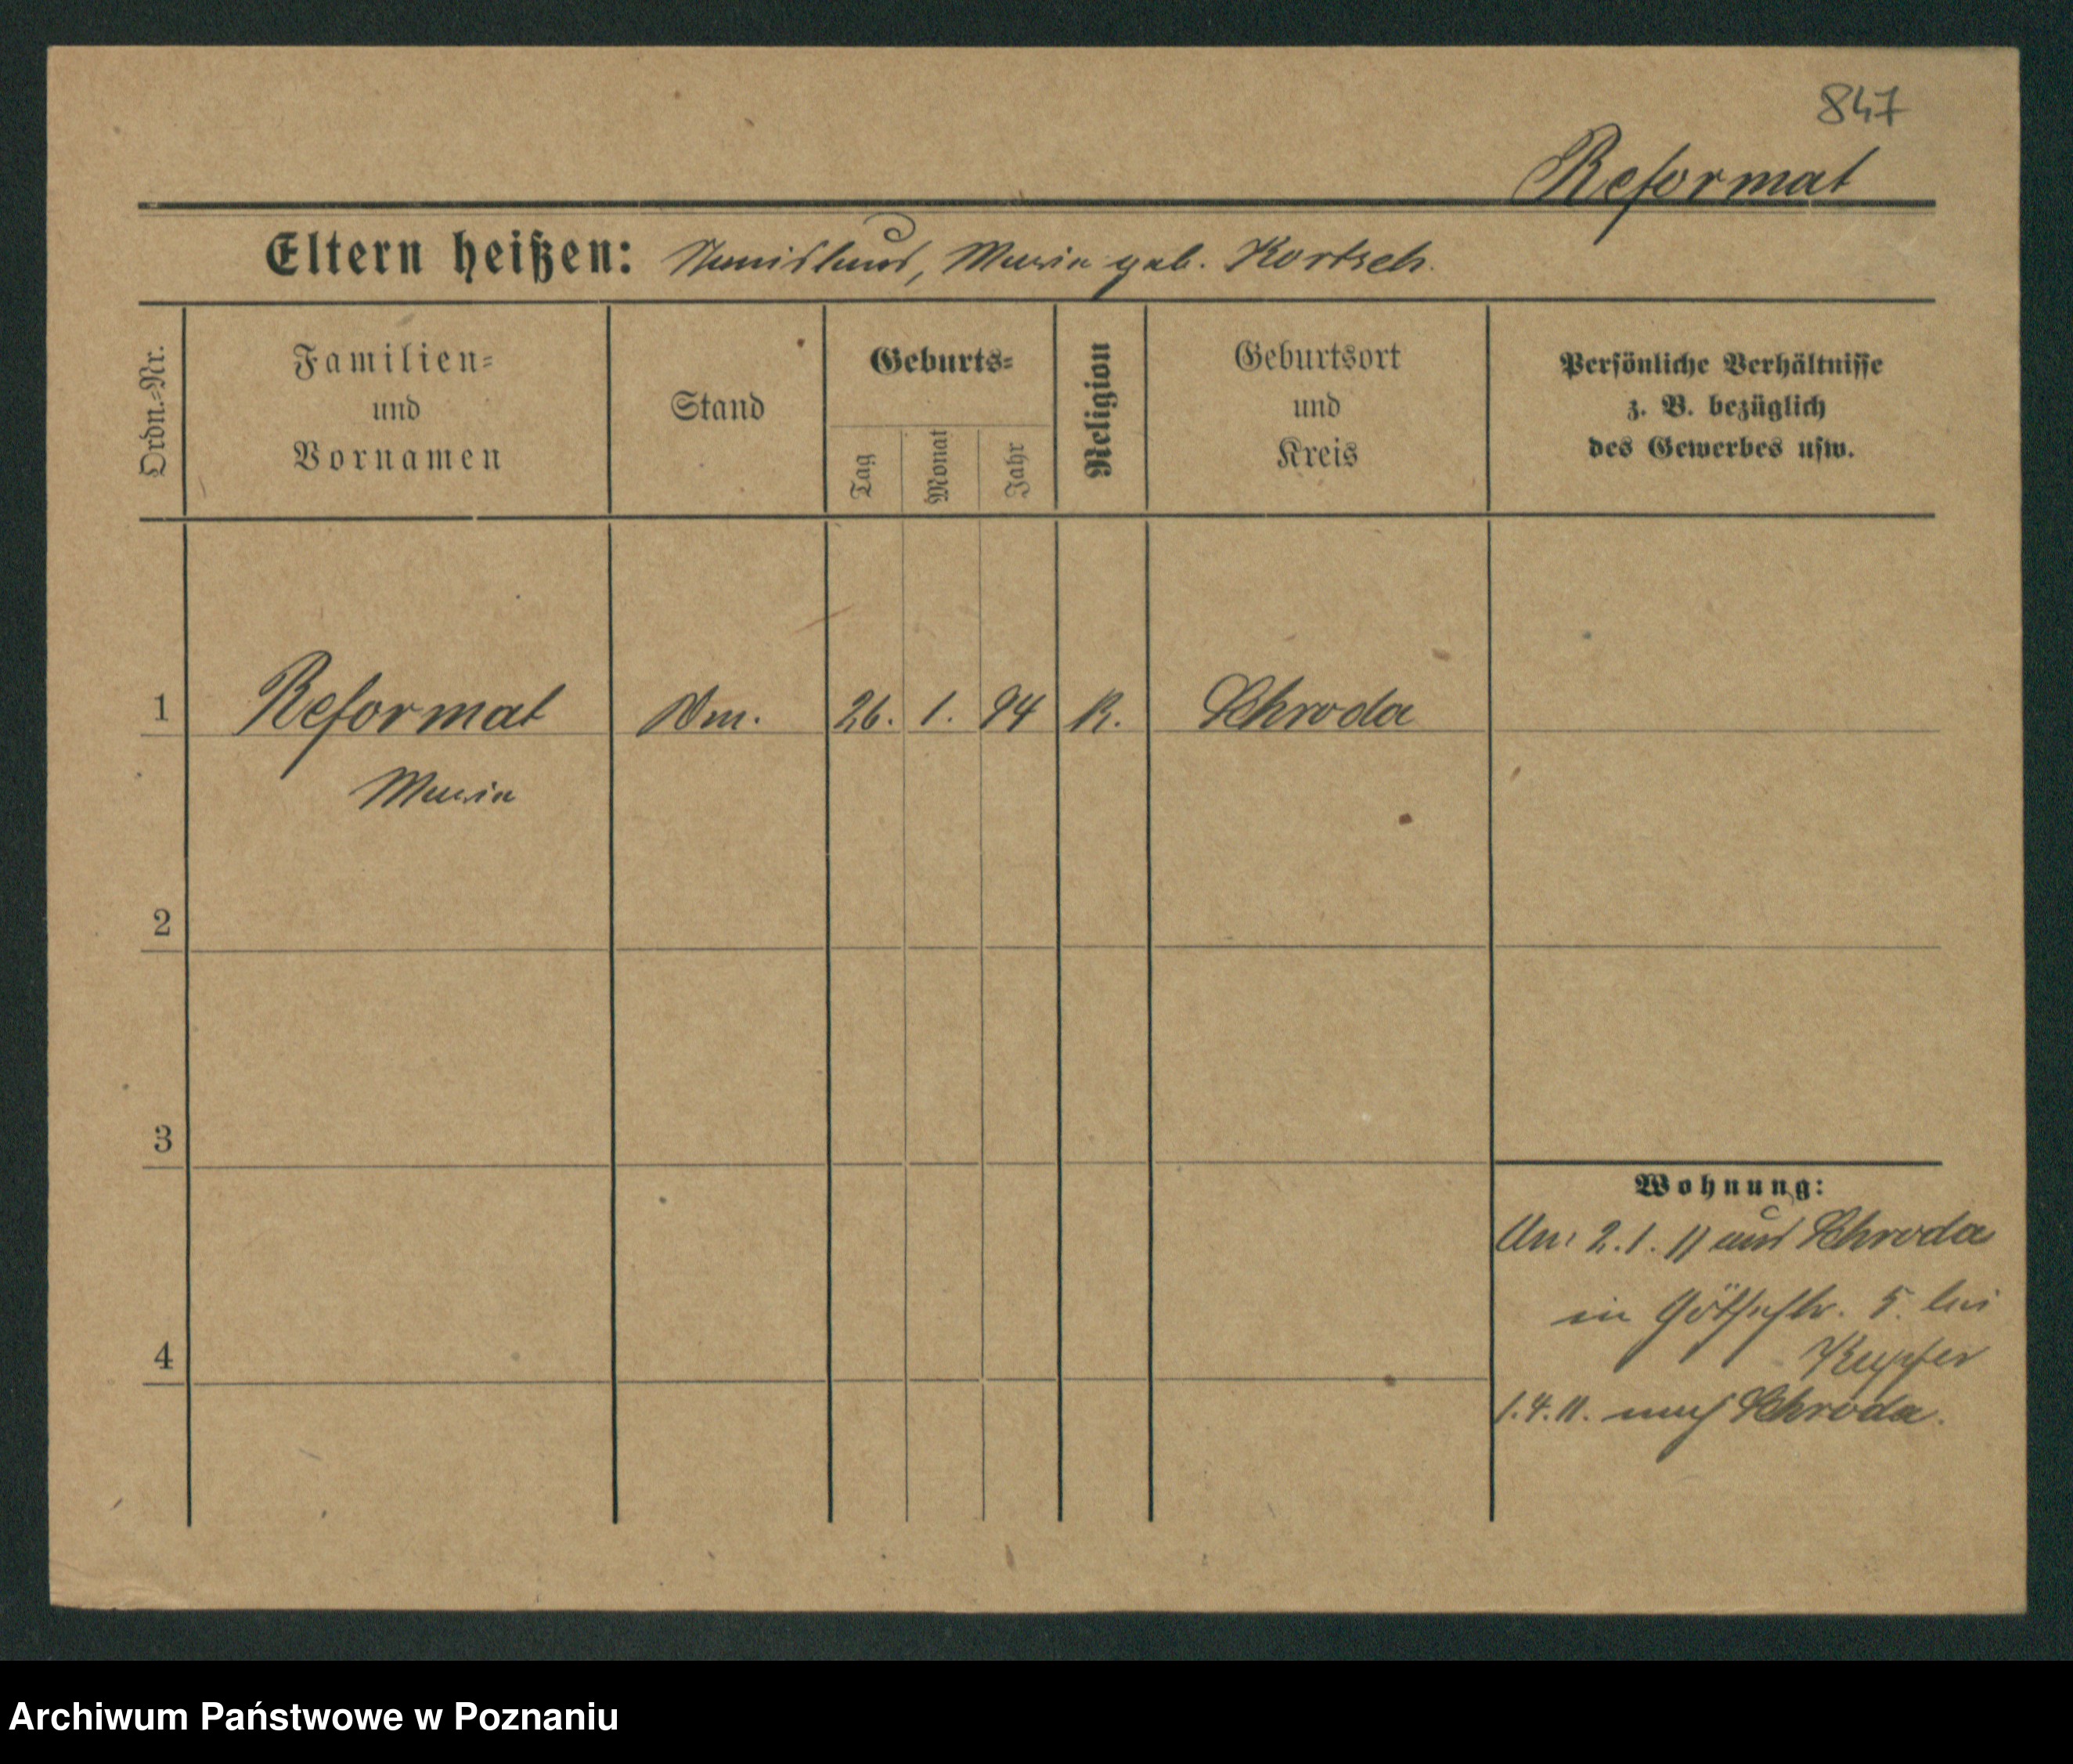 847
Reformat
Eltern heißen: Stanislaus, Maria geb. Kortsch.
Ordn.=Nr.
Familien=
und
Vornamen
Stand
Geburts=
Tag
Monat
Jahr
Religion
Geburtsort
und
Kreis
Persönliche Verhältnisse
z. B. bezüglich
des Gewerbes usw.
1 Reformat 26. 1. 94 K. Schroda
Maria
2
3
4
Wohnung:
An: 2.1.11 aus Schroda
in Götheſtr. 5. bei
Kupfer
1.4.11. nach Schroda.
Archiwum Państwowe w Poznaniu